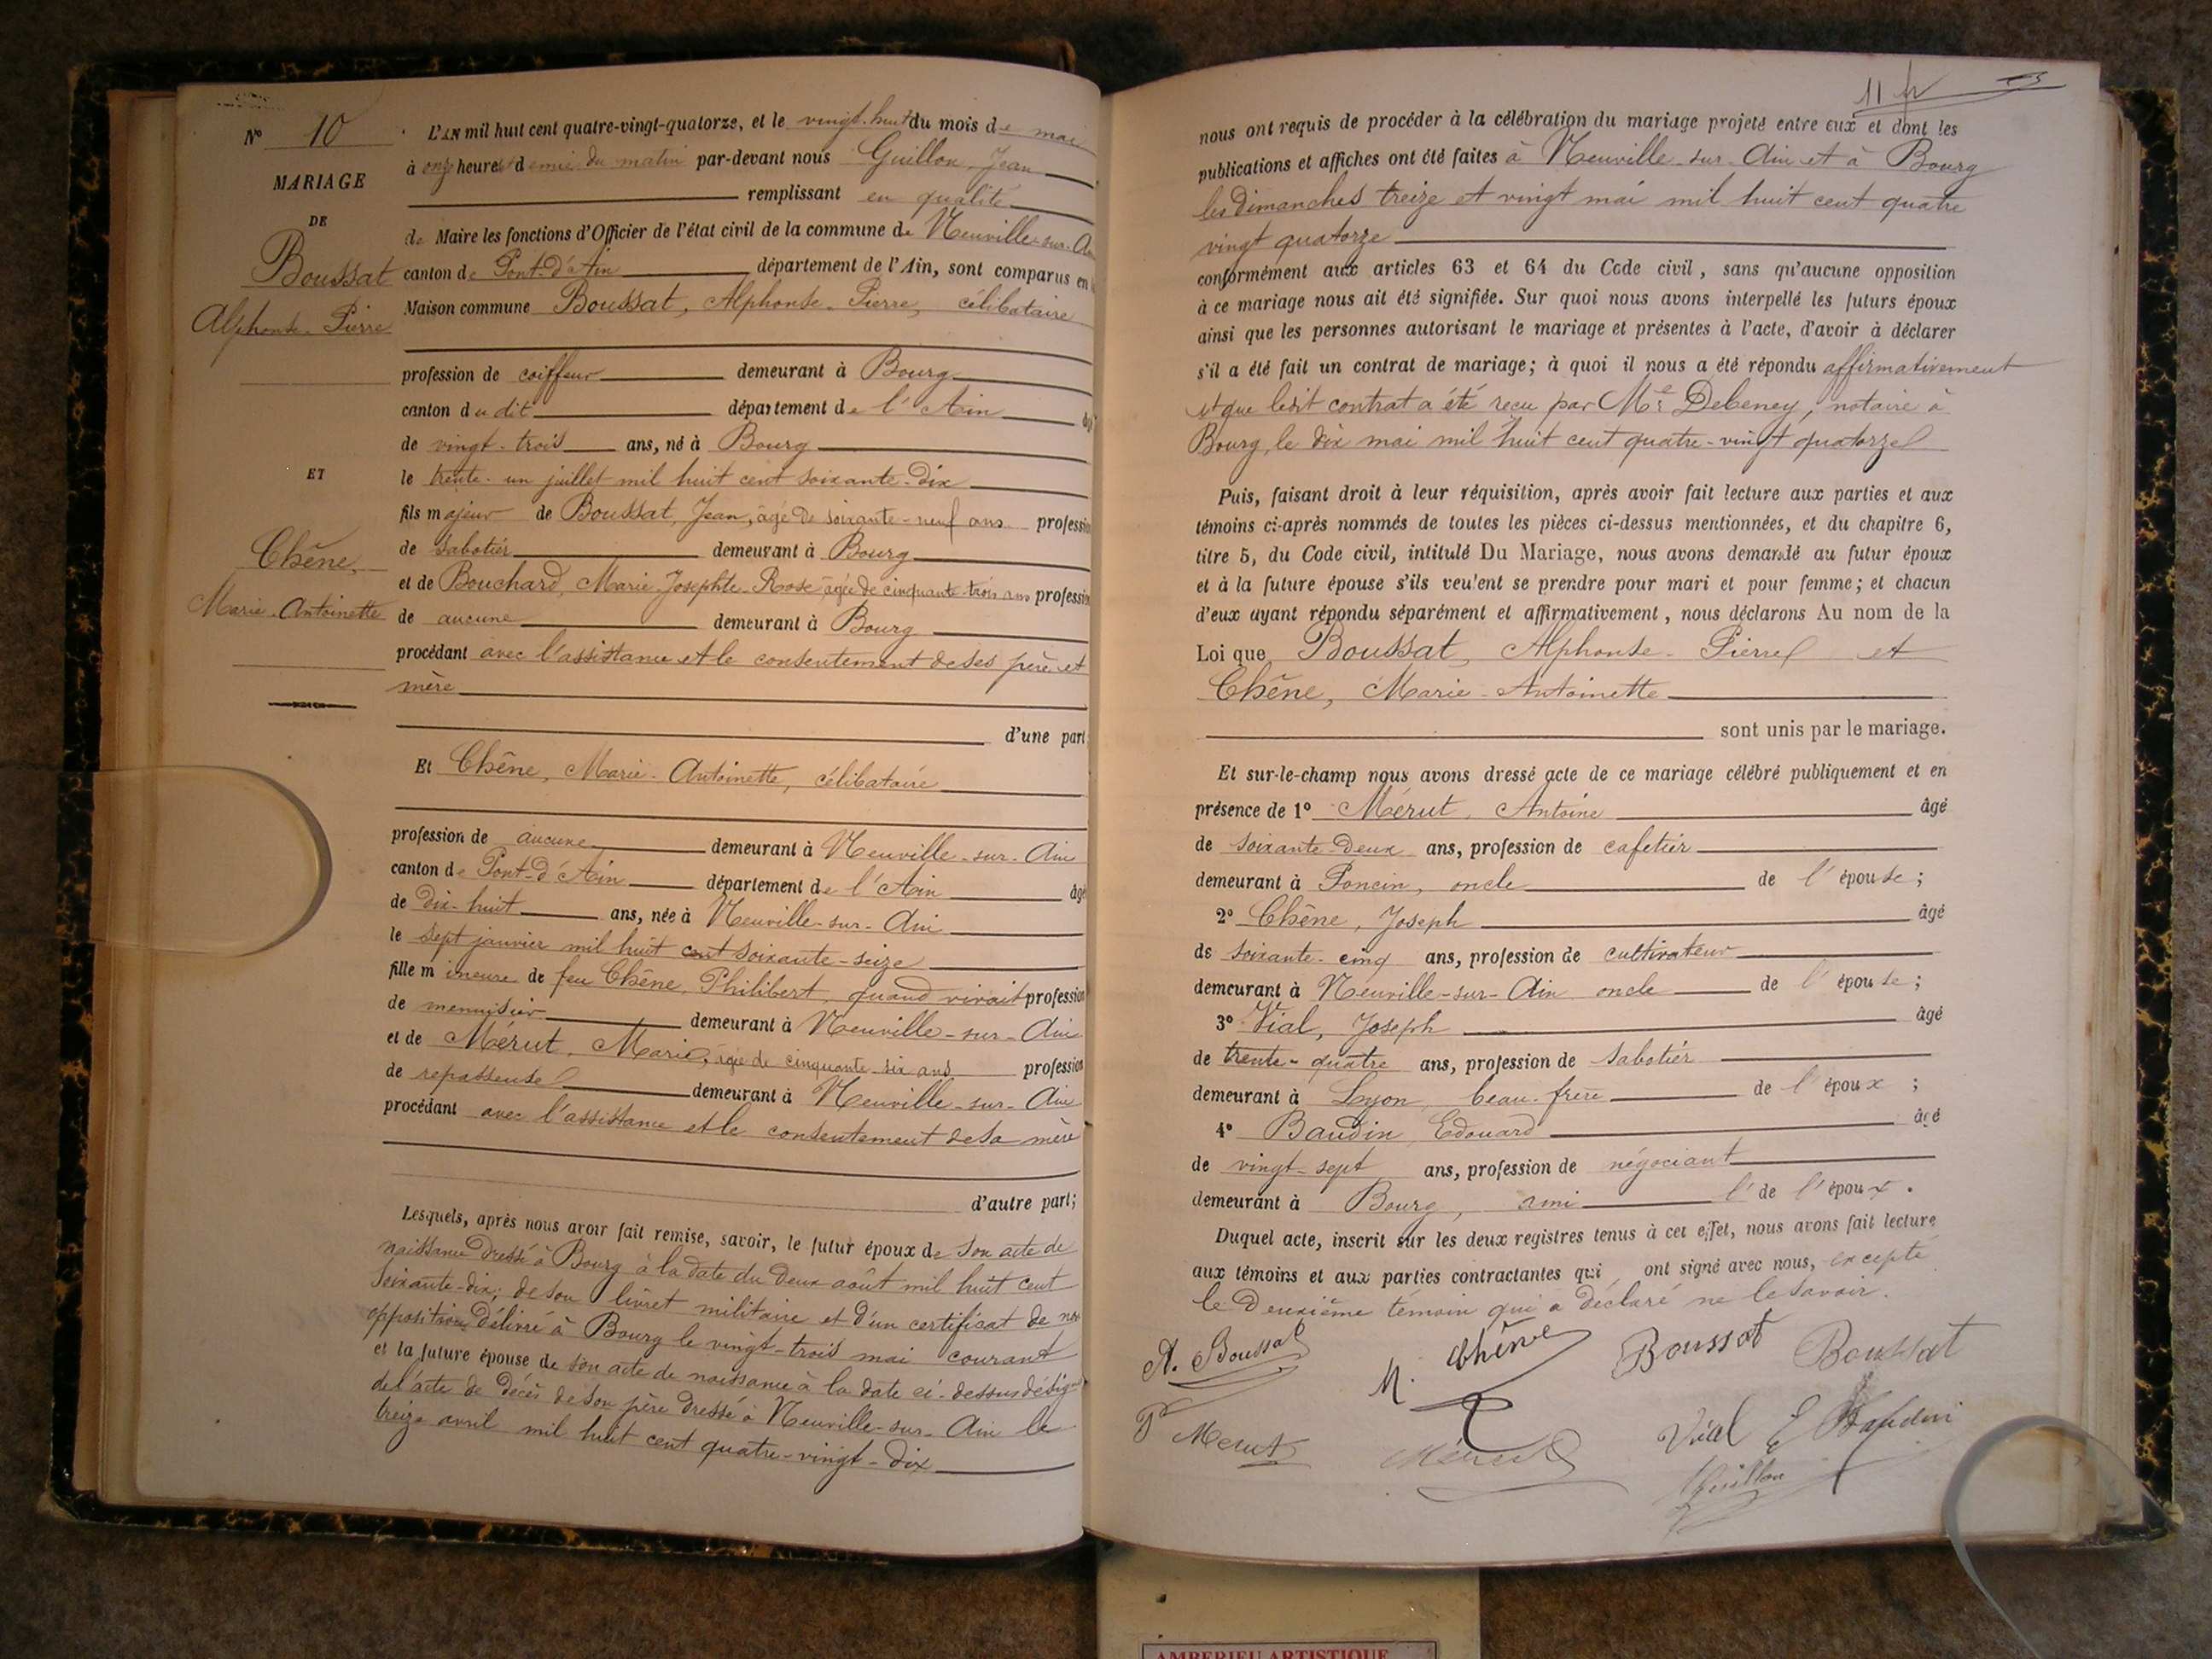 N° 10
MARIAGE
DE
Boussat
Alphonse-Pierre
ET
Chêne,
Marie-Antoinette
L'AN mil huit cent quatre-vingt-quatorze, et le vingt-huit du mois de mai
à onze heures demie du matin par-devant nous Guillon, Jean
remplissant en qualité
de Maire les fonctions d'Officier de l'état civil de la commune de Neuville-sur-A
canton de Pont-d'Ain département de l'Ain, sont comparus en
Maison commune Boussat, Alphonse-Pierre, célibataire
profession de coiffeur demeurant à Bourg
canton du dit département de l'Ain
de vingt-trois ans, né à Bourg
le trente-un juillet mil huit cent soixante-dix
fils majeur de Boussat, Jean, âgé de soixante-neuf ans profession
de sabotier demeurant à Bourg
et de Bouchard, Marie-Josephte-Rose âgée de cinquante-trois ans profession
de aucune demeurant à Bourg
procédant avec l'assistance et le consentement de ses père et
mère
d'une part
Et Chêne, Marie-Antoinette, célibataire
profession de aucune demeurant à Neuville-sur-Ain
canton de Pont-d'Ain département de l'Ain âgé
de dix-huit ans, née à Neuville-sur-Ain
le sept janvier mil huit cent soixante-seize
fille mineure de feu Chêne, Philibert, quand vivait profession
de menuisier demeurant à Neuville-sur-Ain
et de Mérut, Marie, âgée de cinquante-six ans profession
de repasseuse demeurant à Neuville-sur-Ain
procédant avec l'assistance et le consentement de sa mère
d'autre part;
Lesquels, après nous avoir fait remise, savoir, le futur époux de son acte de
naissance dressé à Bourg à la date du deux août mil huit cent
soixante-dix; de son livret militaire et d'un certificat de non
opposition délivré à Bourg le vingt-trois mai courant
et la future épouse de son acte de naissance à la date ci-dessus désigné
de l'acte de décès de son père dressé à Neuville-sur-Ain le
treize avril mil huit cent quatre-vingt-dix
11
nous ont requis de procéder à la célébration du mariage projeté entre eux et dont les
publications et affiches ont été faites à Neuville-sur-Ain et à Bourg
les dimanches treize et vingt mai mil huit cent quatre
vingt quatorze
conformément aux articles 63 et 64 du Code civil, sans qu'aucune opposition
à ce mariage nous ait été signifiée. Sur quoi nous avons interpellé les futurs époux
ainsi que les personnes autorisant le mariage et présentes à l'acte, d'avoir à déclarer
s'il a été fait un contrat de mariage; à quoi il nous a été répondu affirmativement
et que ledit contrat a été reçu par Me Debeney, notaire à
Bourg, le dix mai mil huit cent quatre-vingt quatorze
Puis, faisant droit à leur réquisition, après avoir fait lecture aux parties et aux
témoins ci-après nommés de toutes les pièces ci-dessus mentionnées, et du chapitre 6,
titre 5, du Code civil, intitulé Du Mariage, nous avons demandé au futur époux
et à la future épouse s'ils veulent se prendre pour mari et pour femme; et chacun
d'eux ayant répondu séparément et affirmativement, nous déclarons Au nom de la
Loi que Boussat, Alphonse-Pierre et
Chêne, Marie-Antoinette
sont unis par le mariage.
Et sur-le-champ nous avons dressé acte de ce mariage célébré publiquement et en
présence de 1° Mérut, Antoine âgé
de soixante-deux ans, profession de cafetier
demeurant à Poncin, oncle de l'épouse;
2° Chêne, Joseph âgé
de soixante-cinq ans, profession de cultivateur
demeurant à Neuville-sur-Ain oncle de l'épouse;
3° Vial, Joseph âgé
de trente-quatre ans, profession de sabotier
demeurant à Lyon, beau-frère de l'époux;
4° Baudin, Edouard âgé
de vingt-sept ans, profession de négociant
demeurant à Bourg, ami de l'époux.
Duquel acte, inscrit sur les deux registres tenus à cet effet, nous avons fait lecture
aux témoins et aux parties contractantes qui ont signé avec nous, excepté
le deuxième témoin qui a déclaré ne le savoir.
A. Boussat M. Chêne Boussat Boussat
Merut Mérut Vial E Baudin
Guillon
AMBERIEU ARTISTIQUE